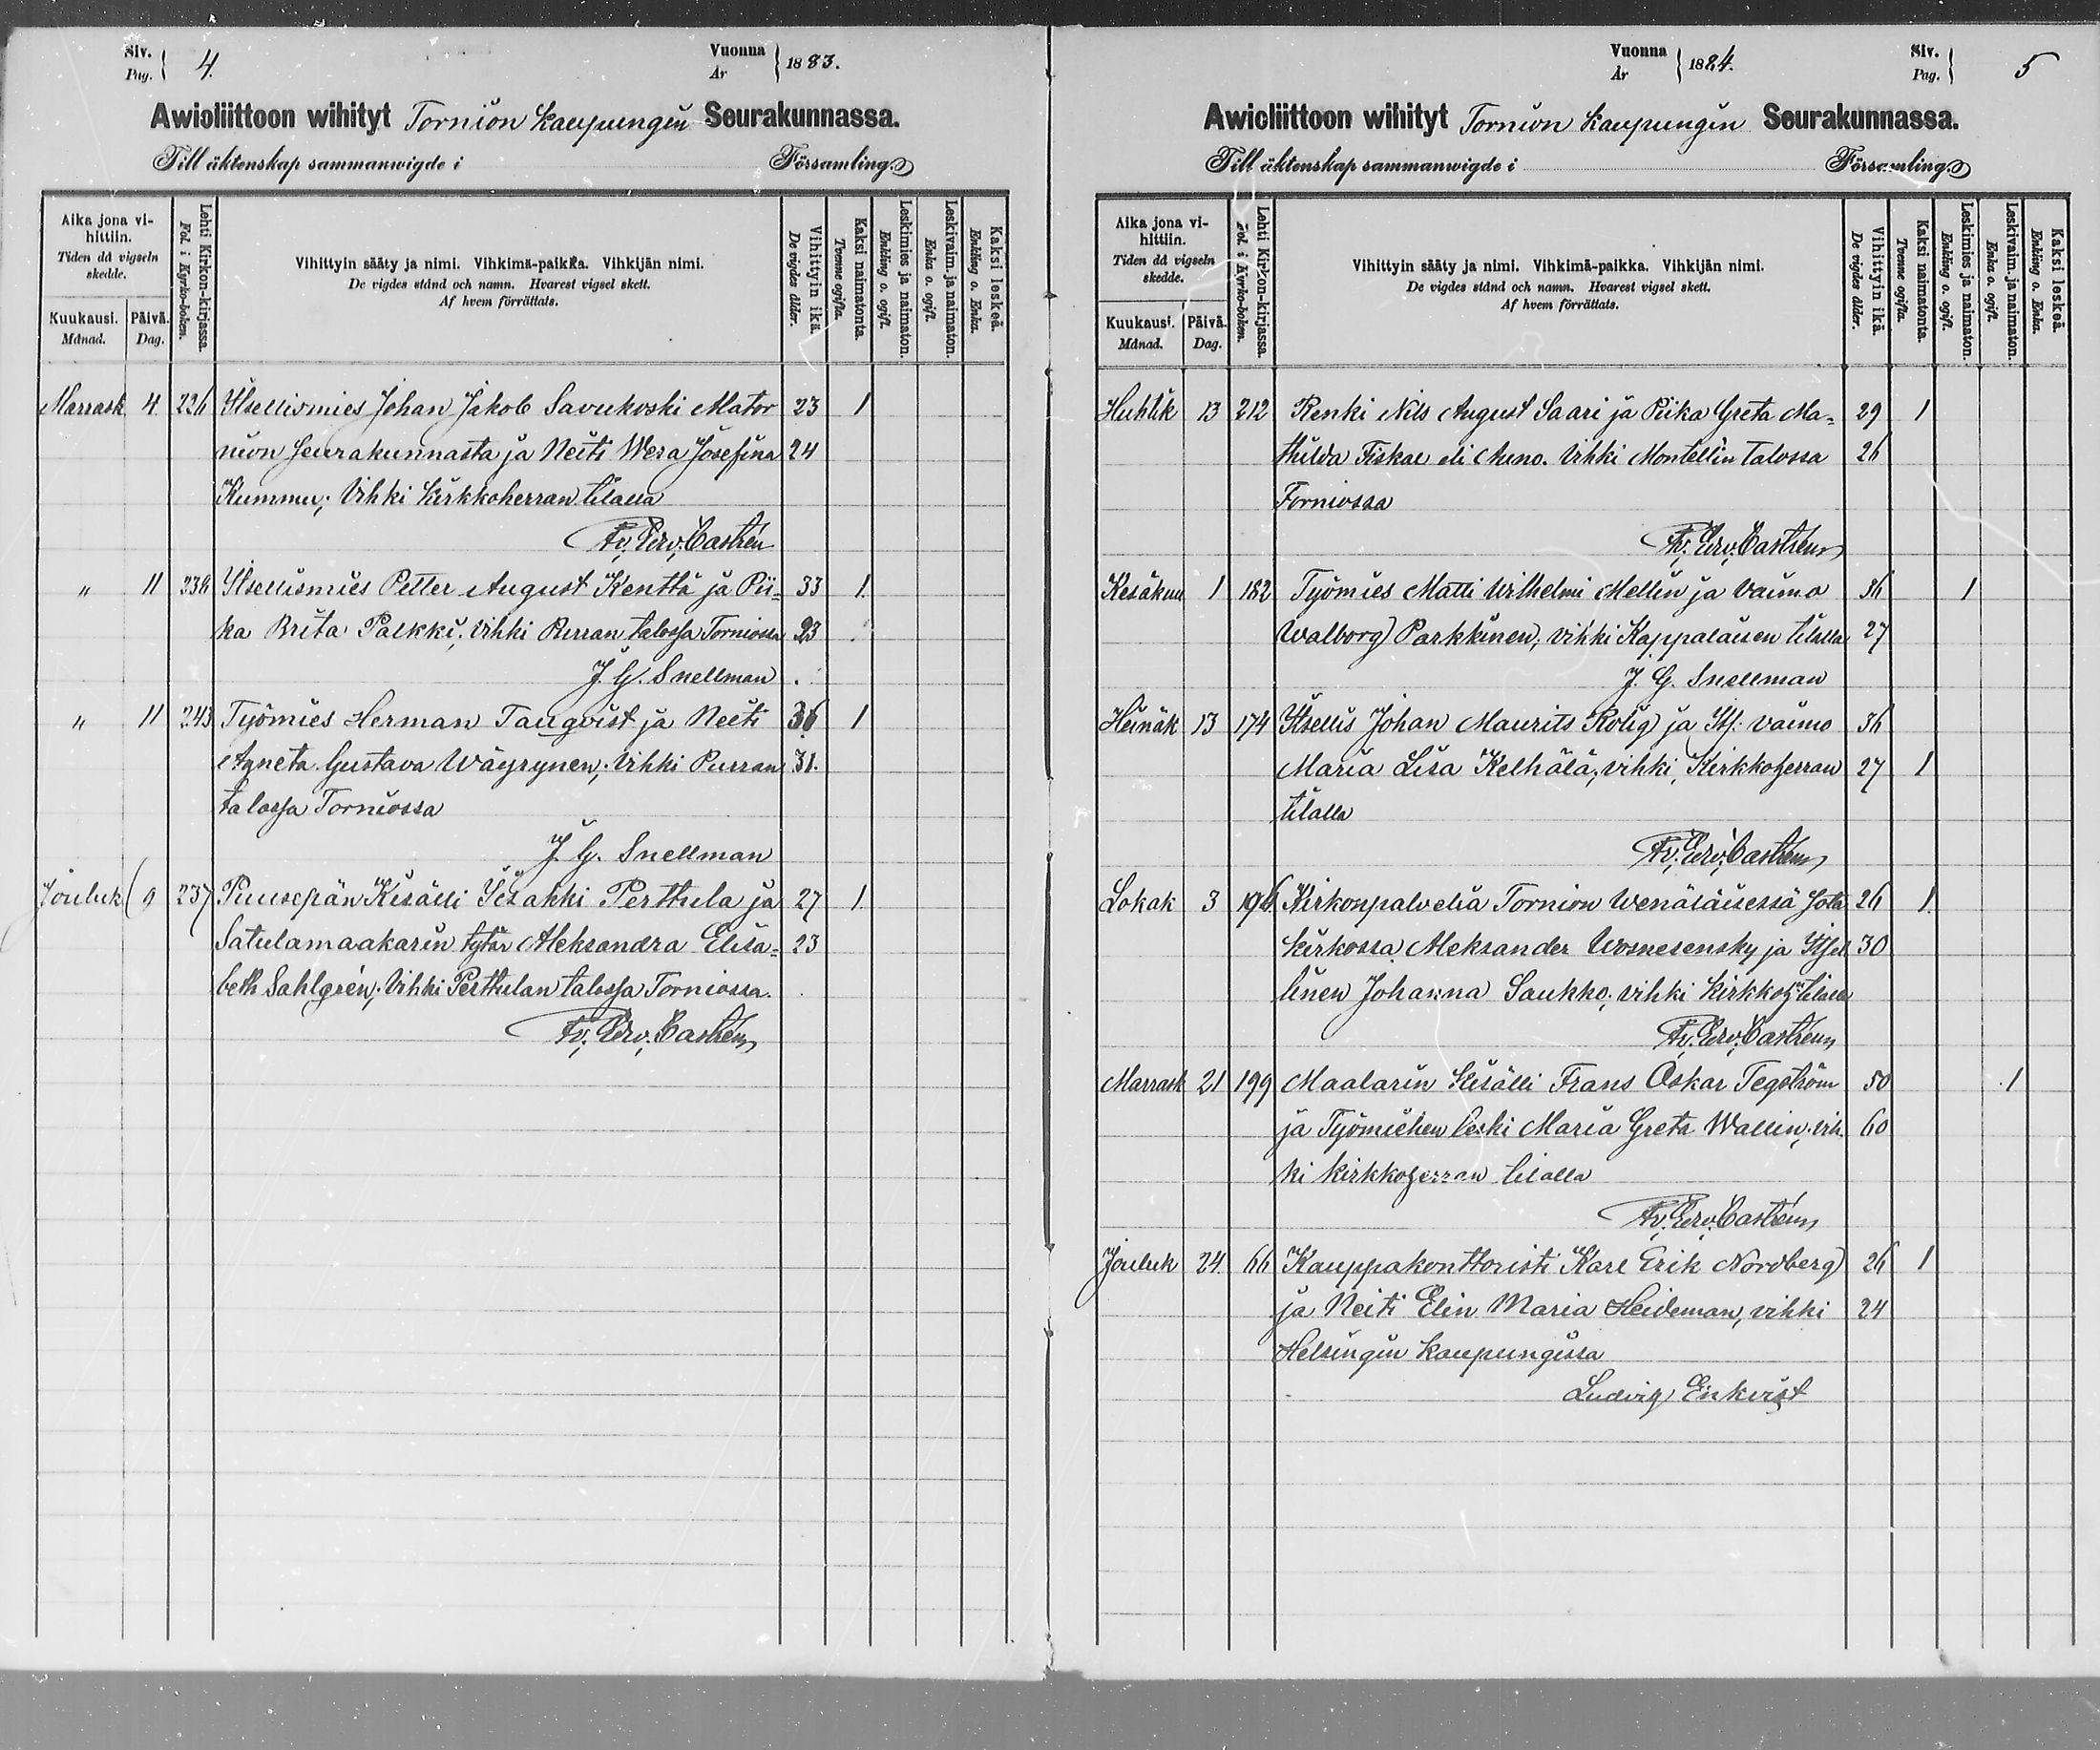 Siv. Pag. 4. Vuonna År 1883.
Awioliittoon wihityt Tornion kaupungin Seurakunnassa.
Till äktenskap sammanwigde i Församling.
Aika jona vihittiin. Tiden då vigseln skedde.
Kuukausi. Månad. Päivä. Dag.
Lehti Kirkon-kirjassa. Fol. i Kyrko-boken.
Vihittyin sääty ja nimi. Vihkimä-paikka. Vihkijän nimi.
De vigdes stånd och namn. Hvarest vigsel skett.
Af hvem förrättats.
Vihittyin ikä. De vigdes ålder.
Kaksi naimatonta. Tvenne ogifta.
Leskimies ja naimaton. Enkling o. ogift.
Leskivaim. ja naimaton. Enka o. ogift.
Kaksi leskeä. Enkling o. Enka.
Marrask 4 226 Itsellismies Johan Jakob Savukoski Alator 23 1
nion seurakunnasta ja Neiti Wera Josefina 24
Kummu; Vihki Kirkkoherran tilalla
Fr. Erv. Castrén
" 11 238 Itsellismies Petter August Kenttä ja Pii= 33 1
ka Brita Palkki; vihki Purran talossa Torniossa 23
J. G. Snellman
" 11 243 Työmies Herman Tanqvist ja Neiti 36 1
Agneta Gustava Wäyrynen; vihki Purran 31.
talossa Torniossa
J. G. Snellman
Jouluk 9 237 Puusepän Kisälli Iisakki Perttula ja 27 1
Satulamaakarin tytär Aleksandra Elisa= 23
beth Sahlgrén; Vihki Perttulan talossa Torniossa.
Fr. Erv. Castrén
Vuonna År 1884. Siv. Pag. 5
Awioliittoon wihityt Tornion kaupungin Seurakunnassa.
Till äktenskap sammanwigde i Församling.
Aika jona vihittiin. Tiden då vigseln skedde.
Kuukausi. Månad. Päivä. Dag.
Lehti Kirkon-kirjassa. Fol. i Kyrko-boken.
Vihittyin sääty ja nimi. Vihkimä-paikka. Vihkijän nimi.
De vigdes stånd och namn. Hvarest vigsel skett.
Af hvem förrättats.
Vihittyin ikä. De vigdes ålder.
Kaksi naimatonta. Tvenne ogifta.
Leskimies ja naimaton. Enkling o. ogift.
Leskivaim. ja naimaton. Enka o. ogift.
Kaksi leskeä. Enkling o. Enka.
Huhtik 13 212 Renki Nils August Saari ja Piika Greta Ma= 29 1
thilda Fiskal eli Vihki Montellin talossa 26
Torniossa
Fr. Erv. Castrén
Kesäkuu 1 182 Työmies Matti Wilhelmi Mellin ja vaimo 36 1
Walborg Parkkinen; vihki Kappalaisen tilalla 27
J. G. Snellman
Heinäk 13 174 Itsellis Johan Maurits Rolig ja Its. vaimo 36
Maria Lisa Kelhälä; vihki Kirkkoherran 27 1
tilalla
Fr. Erv. Castrén
Lokak 3 196 Kirkonpalvelia Tornion Wenäläisessä Sota 26 1
kirkossa Aleksander Wosnesensky ja Itsel 30
linen Johanna Saukko; vihki Kirkkoh:n tilalla
Fr. Erv. Castrén
Marrask 21 199 Maalarin Kisälli Frans Oskar Tegström 50 1
ja Työmiehen leski Maria Greta Wallin, vih 60
ki kirkkoherran tilalla
Fr. Erv. Castrén
Jouluk 24 66 Kauppakonttoristi Karl Erik Nordberg 26 1
ja Neiti Elin Maria Heideman, vihki 24
Helsingin kaupungissa
Ludvig Enkvist